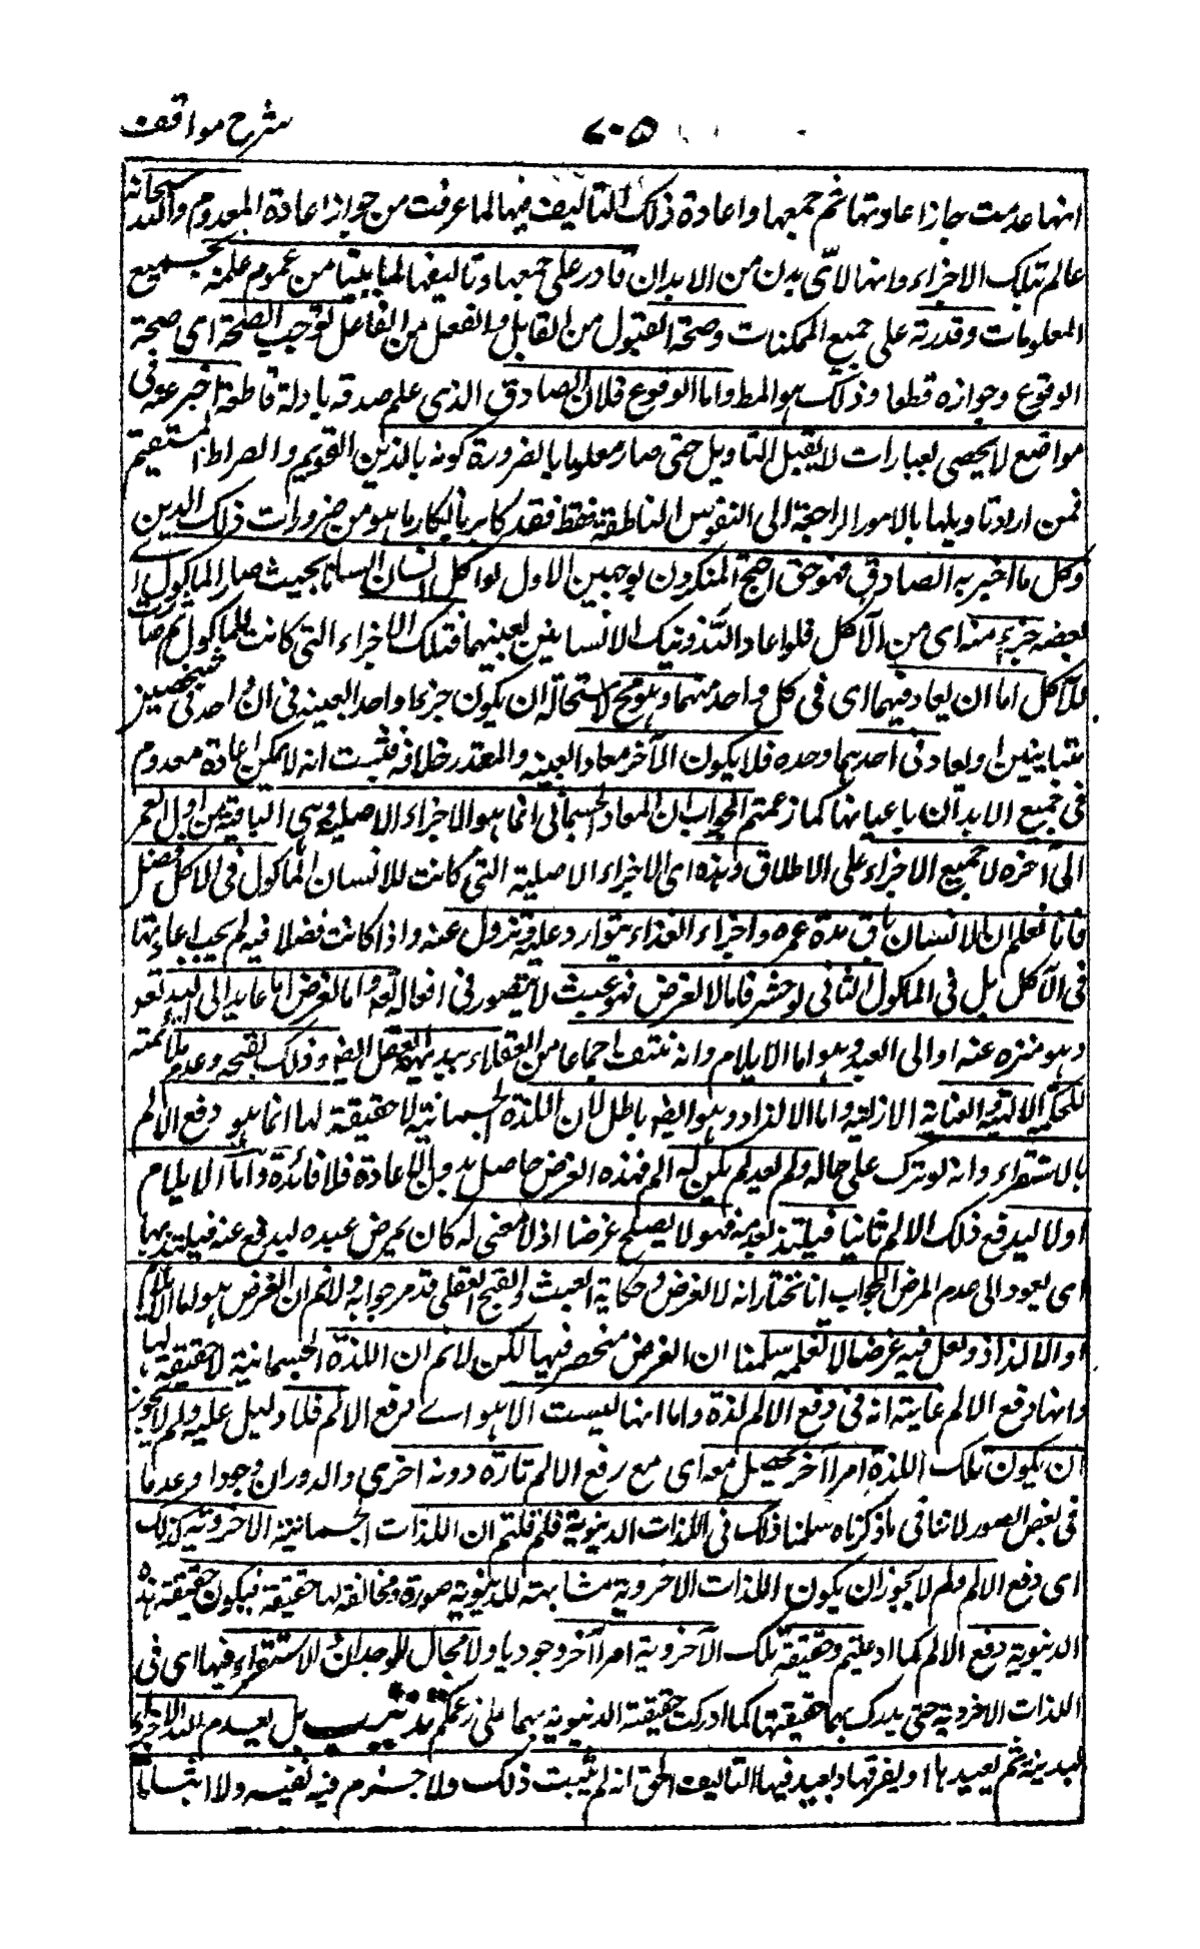 شرح مواقف
٧٠٥
انها عدمت جاز اعادتها ثم جمعها واعادة ذلك التاليف فيها لما عرفت من جواز اعادة المعدوم والله سبحانه
عالم بتلك الاجزاء وانها لاىّ بدن من الابدان قادر على جمعها وتاليفها لما بينا من عموم علمه بجميع
المعلومات وقدرته على جميع الممكنات وصحة القبول من القابل والفعل من الفاعل توجب الصحة اى صحة
الوقوع وجوازه قطعا وذلك هو المط واما الوقوع فلان الصادق الذى علم صدقه بادلة قاطعة اخبر عنه فى
مواضع لا يحصى بعبارات لا يقبل التاويل حتى صار معلوما بالضرورة كونه بالدين القويم والصراط المستقيم
فمن اراد تاويلها بالامور الراجعة الى النفوس الناطقة فقط فقد كابر بانكار ما هو من ضرورات ذلك الدين
وكل ما اخبر به الصادق فهو حق احتج المنكرون بوجهين الاول لو اكل انسان انسانا بحيث صار الماكول اى
بعضه جزء منه اى من الآكل فلو اعاد الله ذينك الانسانين بعينهما فتلك الاجزاء التى كانت للماكول ثم صارت
للآكل اما ان يعاد فيهما اى فى كل واحد منهما وهو مح لاستحالة ان يكون جزء واحد بعينه فى آن واحد فى شخصين
متباينين او يعاد فى احدهما وحده فلا يكون الآخر معادا بعينه والمقدر خلافه فثبت انه لا يمكن اعادة معدوم
فى جميع الابدان باعيانها كما زعمتم الجواب ان المعاد الجسمانى انما هو الاجزاء الاصلية وهى الباقية من اول العمر
الى آخره لا جميع الاجزاء على الاطلاق وهذه اى الاجزاء الاصلية التى كانت للانسان الماكول فى الآكل فضل
فانا نعلم ان الانسان باق مدة عمره واجزاء الغذاء يتوارد عليه وتزول عنه واذا كانت فضلا فيه لم يجب اعادتها
فى الآكل بل فى الماكول الثانى لو حشر فاما لا لغرض فهو عبث لا يتصور فى افعاله تعه واما لغرض اما عايد الى الله تعو
وهو منزه عنه او الى العبد وهو اما الايلام وانه منتف اجماعا من العقلاء بديهة العقل ايضا وذلك لقبحه وعدم ملائمته
للحكمة الالهية والعناية الازلية واما الالذاذ وهو ايضه باطل لان اللذة الجسمانية لا حقيقة لها انما هو دفع الالم
بالاستقراء وانه لو ترك على حاله ولم يعد لم يكن له الم فهذه الغرض حاصل بدون الاعادة فلا فائدة واما الايلام
اولا ليدفع ذلك الالم ثانيا فيلتذ بعد منه فهو لا يصلح غرضا اذ لا معنى له كان يمرض عبده ليدفع عنه فيلتذ بها
اى يعود الى عدم المرض الجواب انا نختار انه لا لغرض وحكاية العبث والقبح العقلى قد مر جوابه ولا نم ان الغرض هو اما الايلام
او الالذاذ ولعل فيه غرضا لا نعلمه سلمنا ان الغرض منحصر فيهما لكن لا نم ان اللذة الجسمانية لا حقيقة لها
وانها دفع الالم غايته انه فى دفع الالم لذة واما انها ليست الا هو اے دفع الالم فلا دليل عليه ولم لا يجوز
ان يكون تلك اللذة امرا آخر يحصل معه اى مع رفع الالم تارة دونه اخرى والدوران وجودا وعدما
فى بعض الصور لا ينافى ما ذكرناه سلمنا ذلك فى اللذات الدنيوية فلم قلتم ان اللذات الجسمانية الاخروية كذلك
اى دفع الالم ولم لا يجوز ان يكون اللذات الاخروية مشابهته للدنيوية صورة ومخالفة لها حقيقة فيكون حقيقة هذه
الدنيوية دفع الالم كما ادعيتم وحقيقة تلك الآخروية امرا آخر وجوديا ولا مجال للوجدان والاستقراء فيها اى فى
اللذات الاخروية حتى يدرك بهما حقيقتها كما ادركت حقيقته الدنيوية بهما على زعمكم تذنيب هل يعدم الله الاجزاء
البدنية ثم يعيدها او يفرقها ويعيد فيها التاليف الحق انه لم يثبت ذلك ولا جزم فيه نفيا ولا اثباتا